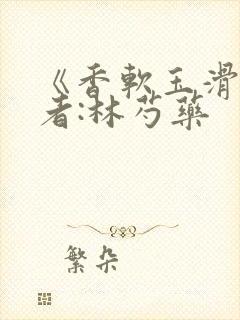 《香軟玉滑
者:林芍藥
繁朵